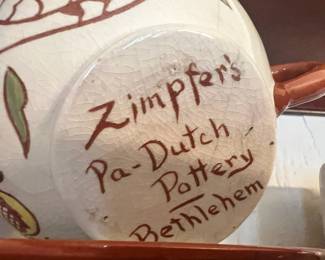 Zimpfer's
Pa-Dutch
Pottery
Bethlehem